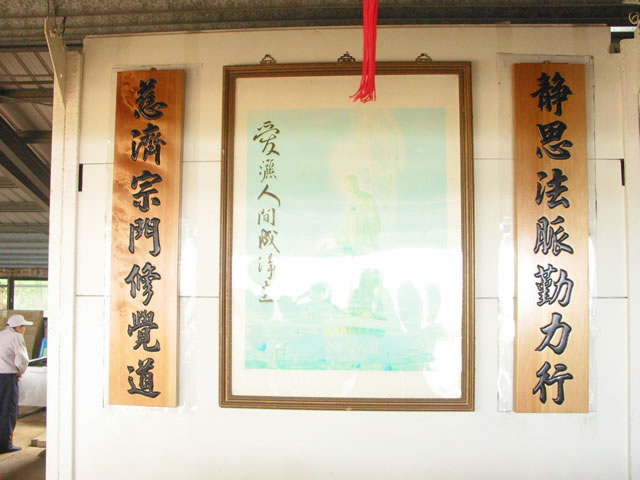 靜思法脈勤力行
愛灑人間成淨土
慈濟宗門修覺道